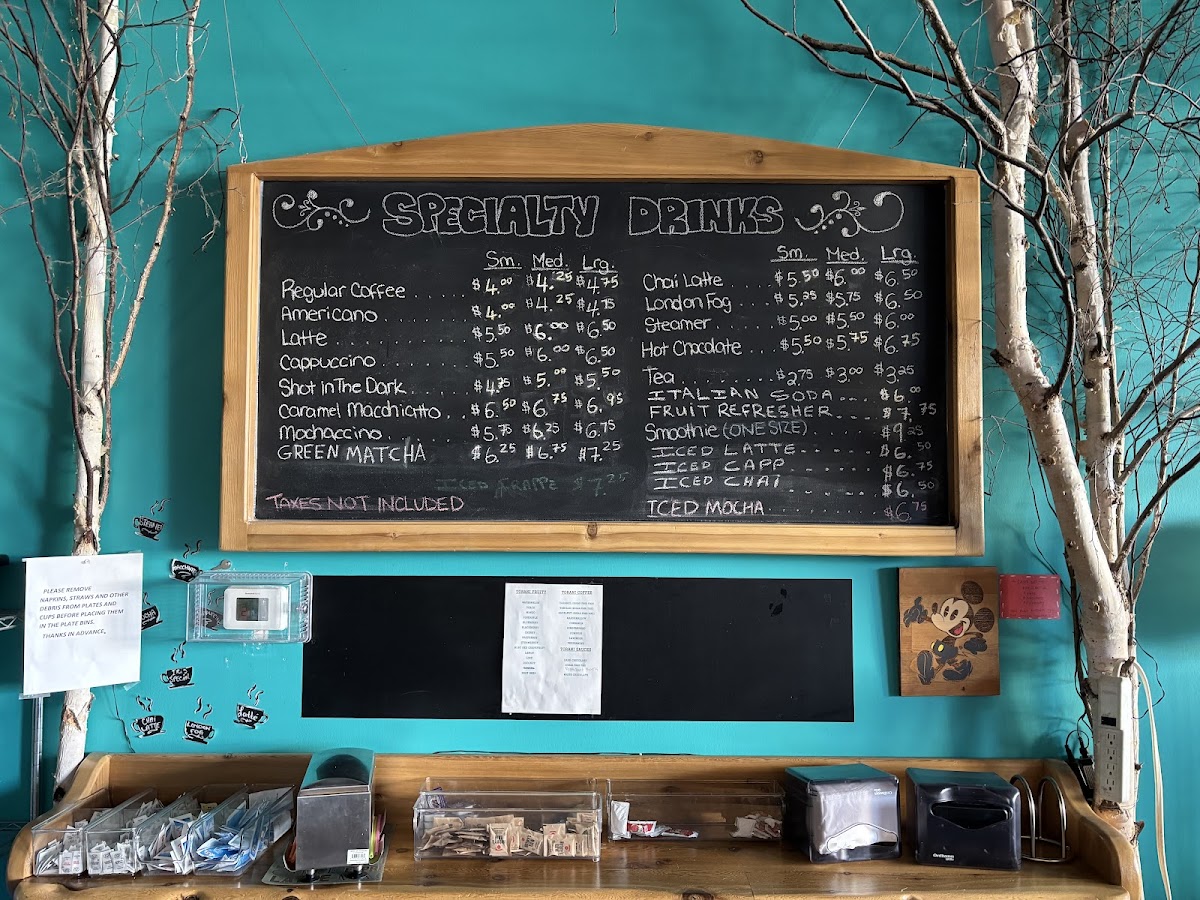 SPECIALTY DRINKS
Sm. Med. Lrg.
Regular Coffee $4.00 $4.25 $4.75
Americano $4.00 $4.25 $4.75
Latte $5.50 $6.00 $6.50
Cappuccino $5.50 $6.00 $6.50
Shot In The Dark $4.75 $5.00 $5.50
Caramel Macchiatto $6.50 $6.75 $6.95
Mochaccino $5.75 $6.25 $6.75
GREEN MATCHA $6.25 $6.75 $7.25
ICED FRAPPE $7.25
TAXES NOT INCLUDED
Sm. Med. Lrg.
Chai Latte $5.50 $6.00 $6.50
London Fog $5.25 $5.75 $6.50
Steamer $5.00 $5.50 $6.00
Hot Chocolate $5.50 $5.75 $6.75
Tea $2.75 $3.00 $3.25
ITALIAN SODA $6.00
FRUIT REFRESHER $7.75
Smoothie (ONE SIZE) $9.25
ICED LATTE $6.50
ICED CAPP $6.75
ICED CHAI $6.50
ICED MOCHA $6.75
PLEASE REMOVE
NAPKINS, STRAWS AND OTHER
DEBRIS FROM PLATES AND
CUPS BEFORE PLACING THEM
IN THE PLATE BINS.
THANKS IN ADVANCE,
TORANI FRUITY
TORANI COFFEE
CHAI LATTE
LONDON FOG
Latte